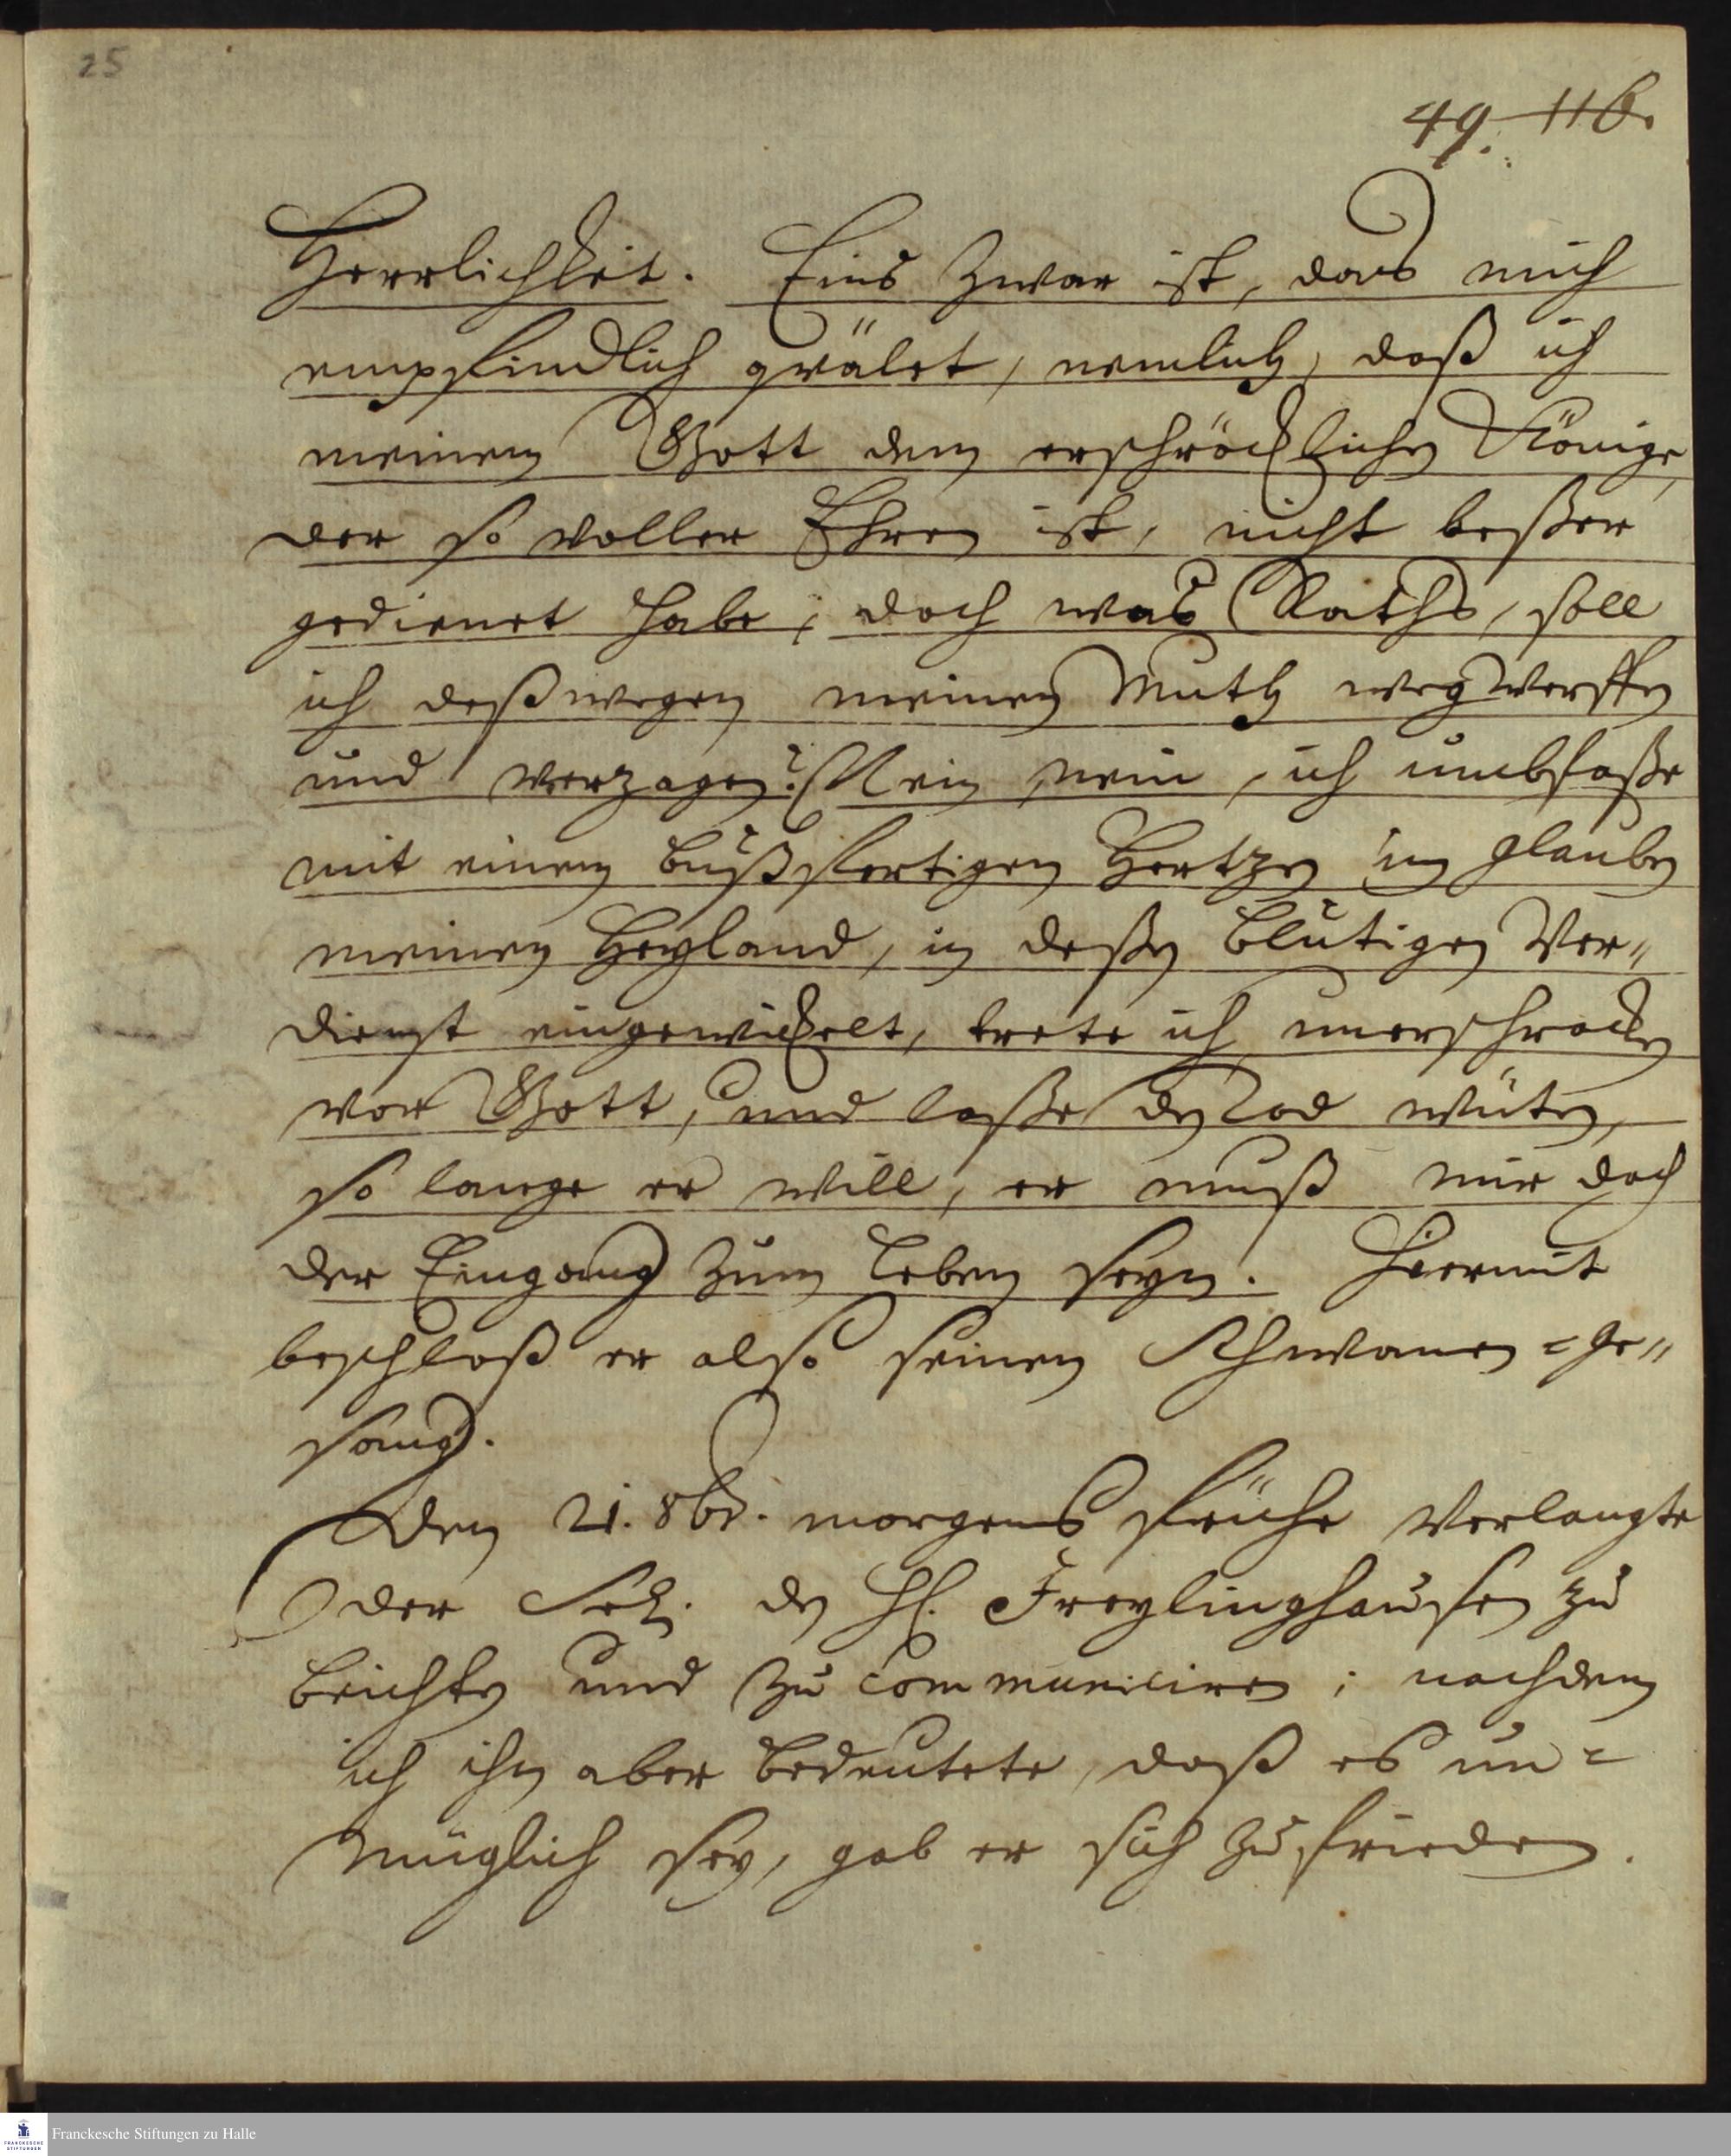 25
49. 116.
Herrlichkeit. Eins zwar ist, das mich
empfindlich qvälet, nemlich, daß ich
meinem Gott dem erschröcklichen Könige,
der so voller Ehren ist, nicht beßer
gedienet habe; doch was Raths, soll
ich deßwegen meinen Muth wegwerffen
und verzagen? Nein, nein, ich umbfaße
mit einem bußfertigen Hertzen im glauben
meinen Heyland, in deßen blutigen Ver„
dienst eingewickelt, trete ich unerschrocken
vor Gott, und laße den Tod wüten,
so lange er will, er muß mir doch
der Eingang zum Leben seyn. Hiermit
beschloß er also seinen Schwanen=Ge„
sang.
Den 21. 8br. morgens frühe verlangte
der Seel. den H. Freylinghausen zu
beichten und zu communiciren; nachdem
ich ihn aber bedeutete, daß es un=
müglich sey, gab er sich zufrieden.
Franckesche Stiftungen zu Halle
FRANCKESCHE
STIFTUNGEN